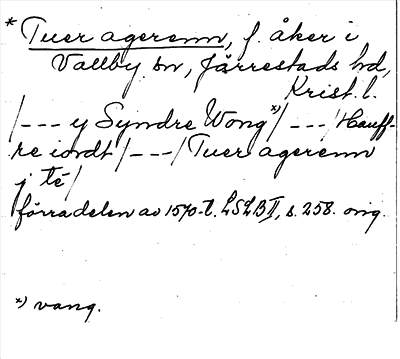 * Tuer agerenn, f. åker i
Vallby sn, Järrestads hd,
Krist. l.
/--- y Syndre Wong *)/ --- /Hauff-
re iordt /---/ Tuer agerenn
j té/
förra delen av 1570-t. LSLB II, s. 258. orig.
*) vang.